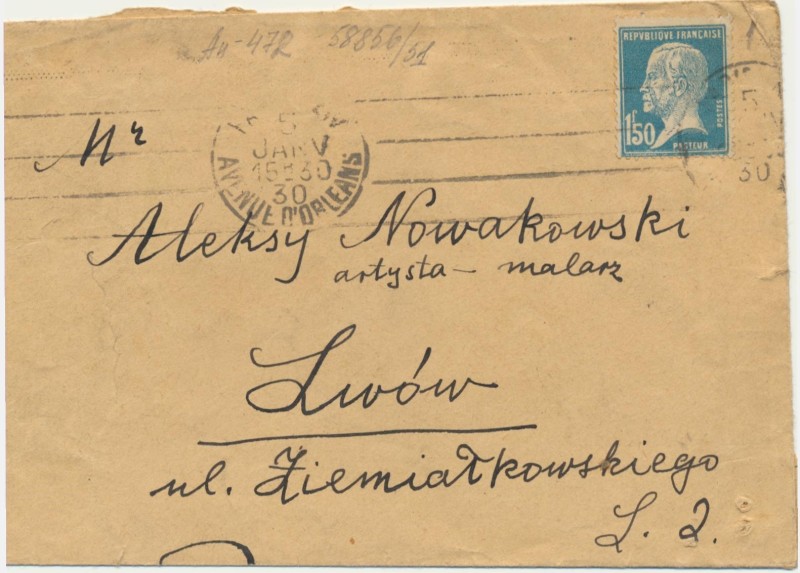 An-47R 58856/51
REPVBLIQVE FRANÇAISE
1F50
POSTES
PASTEUR
5
JANV
15H30
30
AVENUE D'ORLEANS
5
30
Mr
Aleksy Nowakowski
artysta - malarz
Lwów
ul. Ziemiałkowskiego
L. 2.